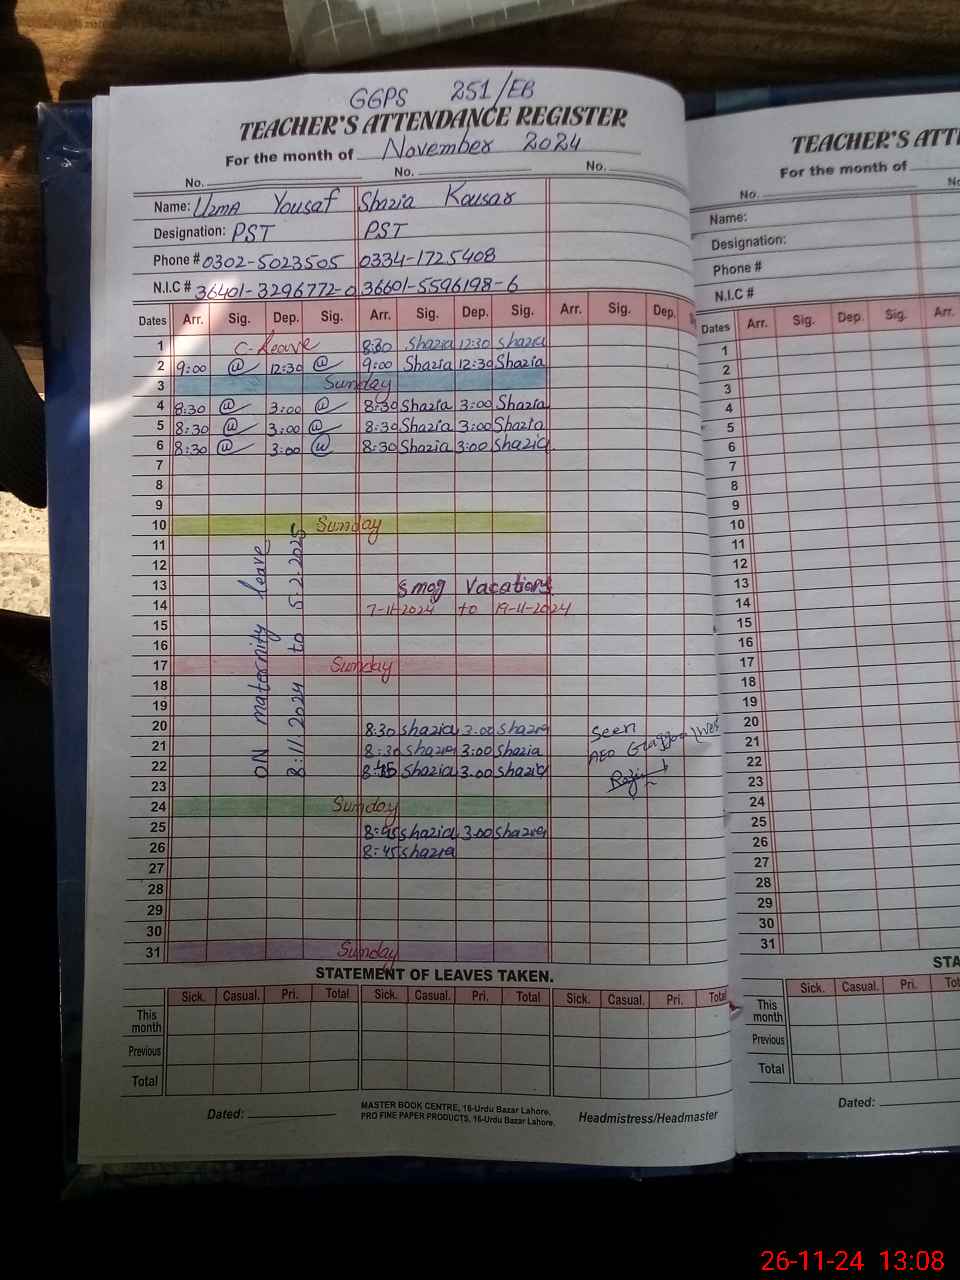 GGPS 251/EB
TEACHER'S ATTENDANCE REGISTER
For the month of November 2024
No. No. No.
Name: Uzma Yousaf Shazia Kousar
Designation: PST PST
Phone # 0302-5023505 0334-1725408
N.I.C # 36401-3296772-0 36601-5596198-6
Dates Arr. Sig. Dep. Sig. Arr. Sig. Dep. Sig. Arr. Sig. Dep.
1 C-Leave 8:30 Shazia 12:30 Shazia
2 9:00 @ 12:30 @ 9:00 Shazia 12:30 Shazia
3 Sunday
4 8:30 @ 3:00 @ 8:30 Shazia 3:00 Shazia
5 8:30 @ 3:00 @ 8:30 Shazia 3:00 Shazia
6 8:30 @ 3:00 @ 8:30 Shazia 3:00 Shazia
7
8
9
10 Sunday
11
12
13 Smog Vacations
14 7-11-2024 to 19-11-2024
15
16
17 Sunday
18
19
20 8:30 Shazia 3:00 Shazia
21 8:30 Shazia 3:00 Shazia
22 8:45 Shazia 3:00 Shazia
23
24 Sunday
25 8:45 Shazia 3:00 Shazia
26 8:45 Shazia
27
28
29
30
31 Sunday
ON maternity leave
8.11.2024 to 5.2.2025
Seen
AEO
STATEMENT OF LEAVES TAKEN.
Sick. Casual. Pri. Total Sick. Casual. Pri. Total Sick. Casual. Pri. Total
This month
Previous
Total
Dated:
MASTER BOOK CENTRE, 16-Urdu Bazar Lahore.
PRO FINE PAPER PRODUCTS, 16-Urdu Bazar Lahore.
Headmistress/Headmaster
TEACHER'S ATTE
For the month of
No. No.
Name:
Designation:
Phone #
N.I.C #
Dates Arr. Sig. Dep. Sig. Arr.
1
2
3
4
5
6
7
8
9
10
11
12
13
14
15
16
17
18
19
20
21
22
23
24
25
26
27
28
29
30
31
STA
Sick. Casual. Pri. Tot
This month
Previous
Total
Dated:
26-11-24 13:08